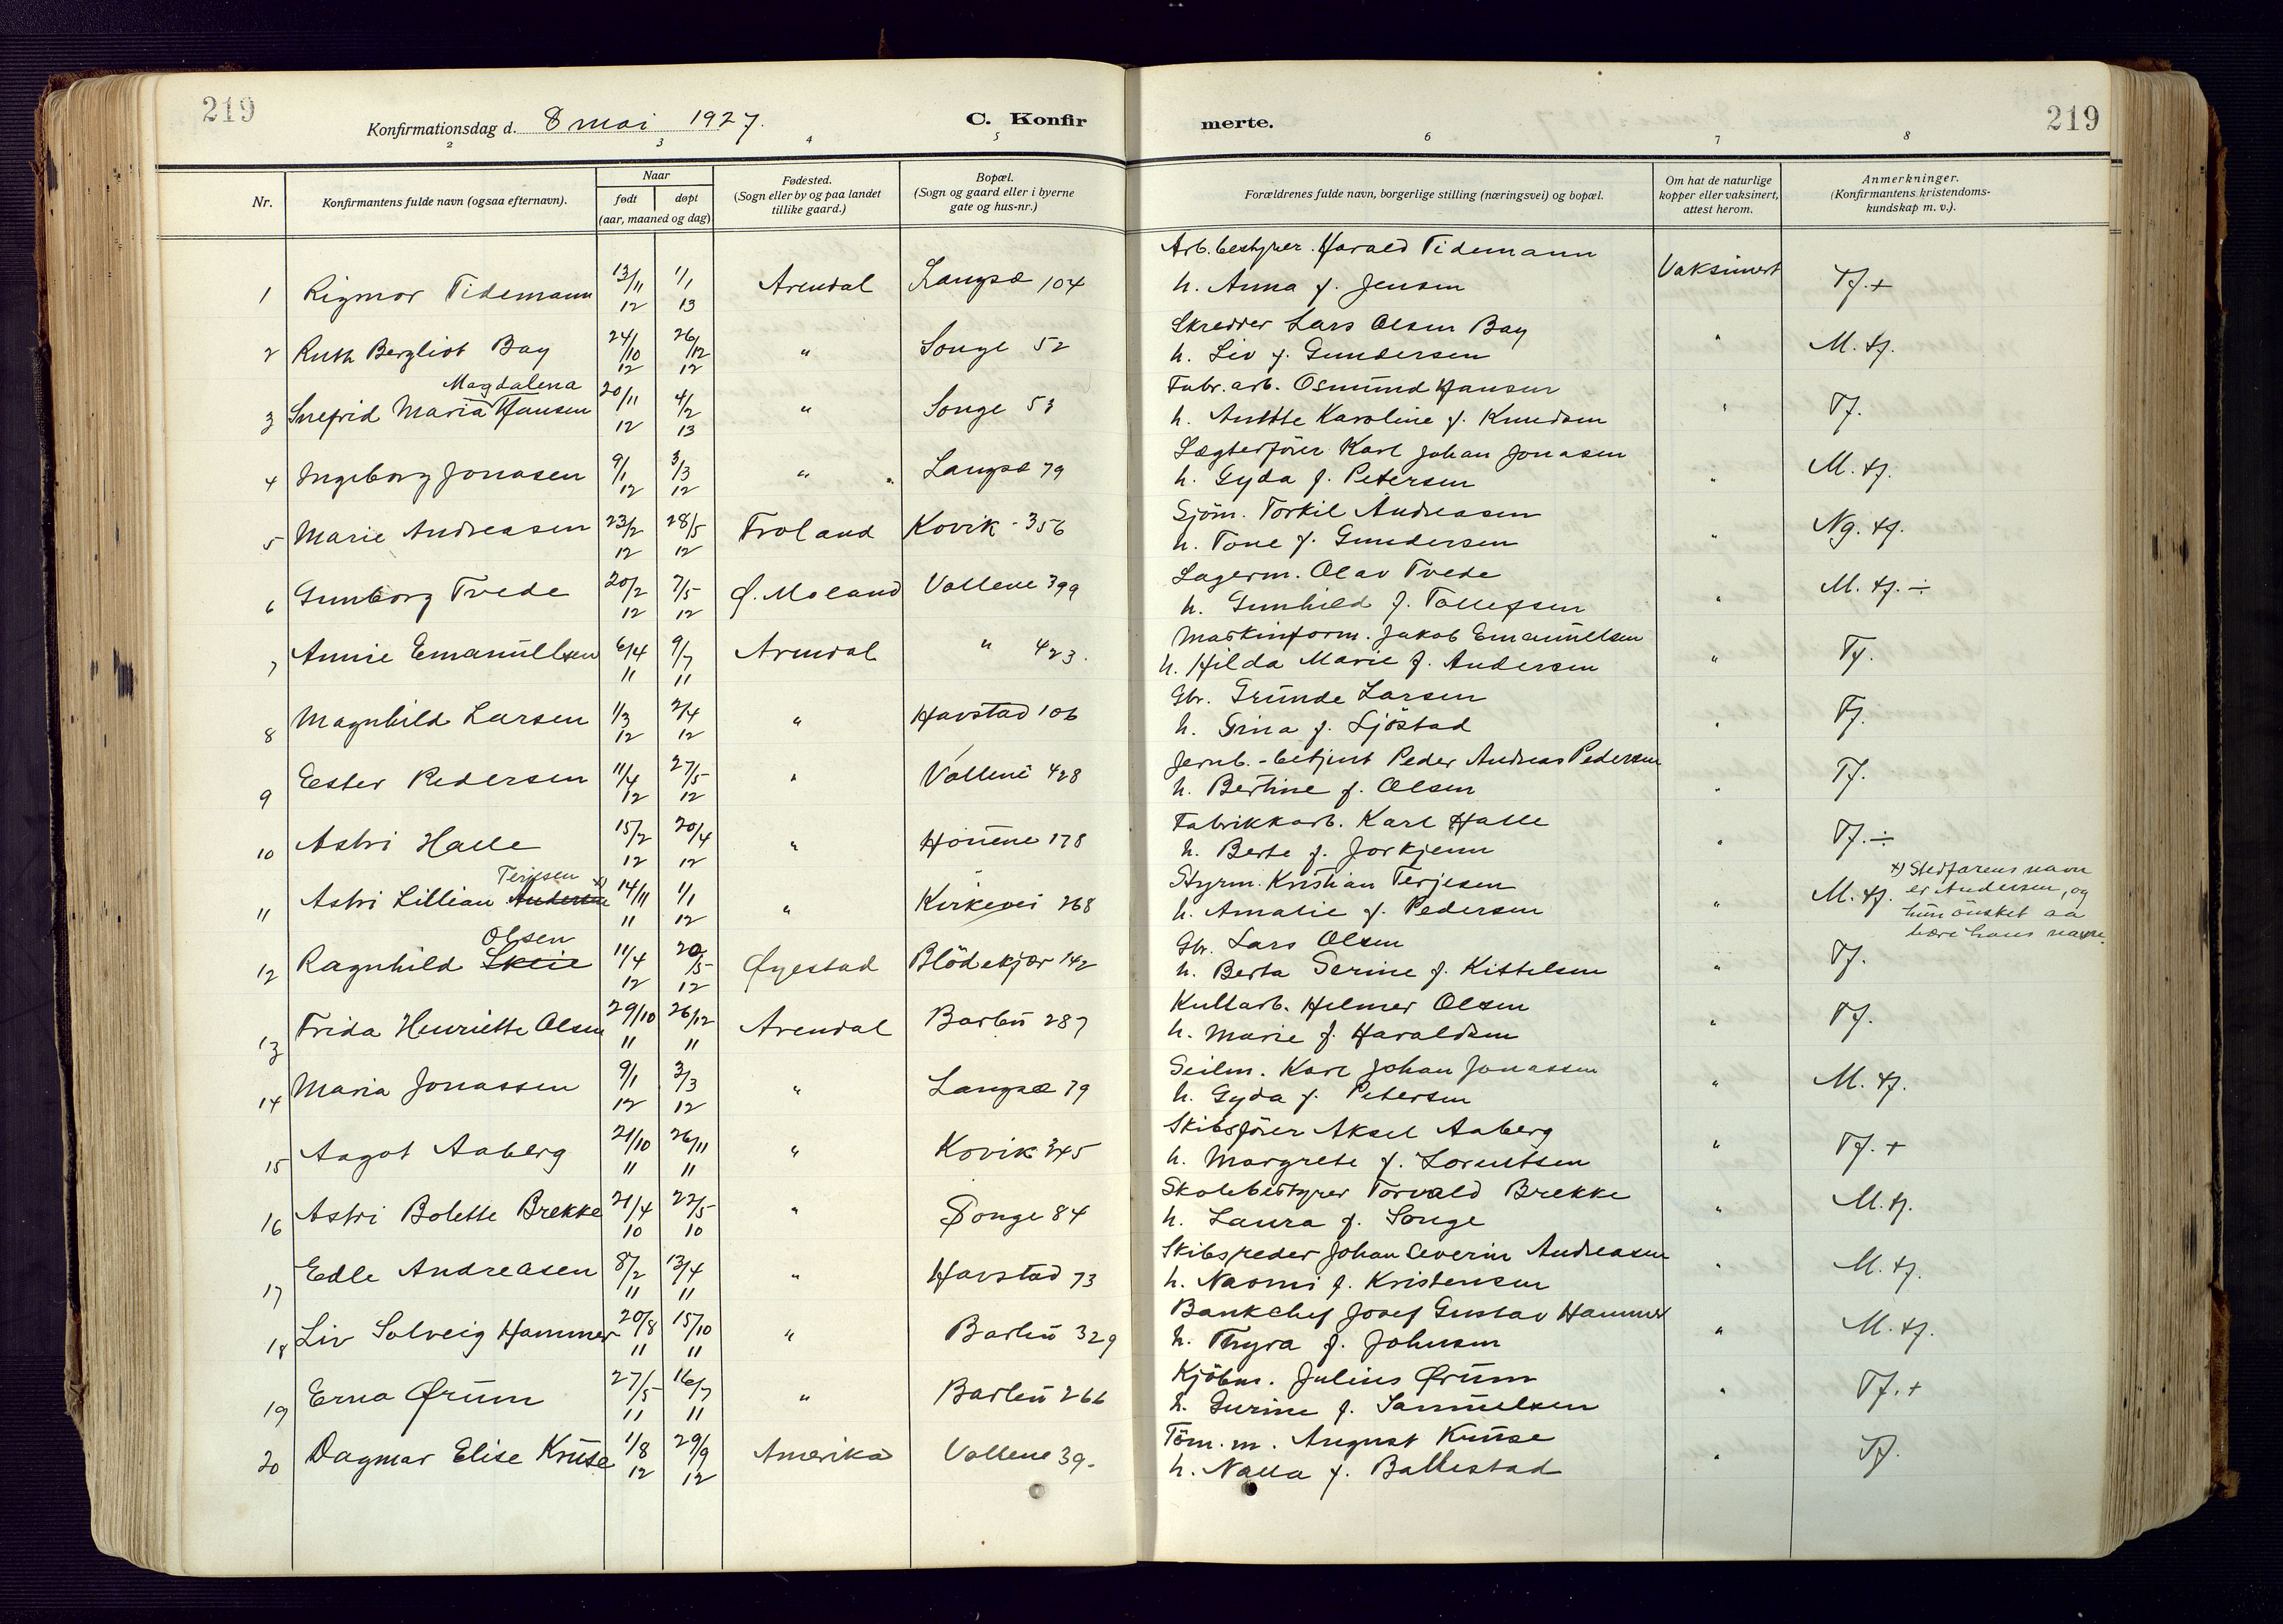 219
Konfirmationsdag d. 8 mai 1927.
C. Konfir
merte.
219
2 3 4 5 6 7 8
Nr.
Konfirmantens fulde navn (ogsaa efternavn).
Naar
født døpt
(aar, maaned og dag)
Fødested.
(Sogn eller by og paa landet
tillike gaard.)
Bopæl.
(Sogn og gaard eller i byerne
gate og hus-nr.)
Forældrenes fulde navn, borgerlige stilling (næringsvei) og bopæl.
Om hat de naturlige
kopper eller vaksinert,
attest herom.
Anmerkninger.
(Konfirmantens kristendoms-
kundskap m. v.).
Arb.bestyrer. Harald Tidemann
1 Rigmor Tidemann 13/11 12 1/1 13 Arendal Langsæ 104 h. Anna f. Jensen Vaksinert Tf. +
Skredder Lars Olsen Bay
2 Ruth Bergliot Bay 24/10 12 26/12 12 " Songe 52 h. Liv f. Gundersen " M. tf.
Magdalena
Fabr. arb. Osmund Hansen
3 Snefrid Maria Hansen 20/11 12 4/2 13 " Songe 53 h. Anette Karoline f. Knudsen " Tf.
Lægterfører Karl Johan Jonasen
4 Ingeborg Jonasen 9/1 12 3/3 12 " Langsæ 79 h. Gyda f. Petersen " M. tf.
Sjöm. Torkil Andreasen
5 Marie Andreassen 23/2 12 28/5 12 Froland Kovik - 356 h. Tone f. Gundersen " Ng. tf.
Lagerm. Olav Tvede
6 Gunborg Tvede 20/2 12 7/5 12 Ø. Moland Vollene 399 h. Gunhild f. Tollefsen " M. tf. ÷
Maskinform. Jakob Emanuelsen
7 Annie Emanuelsen 6/4 11 9/7 11 Arendal " 423. h. Hilda Marie f. Andersen " Tf.
Gbr. Grunde Larsen
8 Magnhild Larsen 1/3 12 2/4 12 " Havstad 106 h. Gina f. Sjöstad " Tf.
Jernb. - betjent Peder Andreas Pedersen
9 Ester Pedersen 11/4 12 27/5 12 " Vollene 428 h. Bertine f. Olsen " Tf.
Fabrikkarb. Karl Halle
10 Astri Halle 15/2 12 20/4 12 " 178 h. Berte f. Jorkjenn " Tf. ÷
Terjesen x)
Styrm. Kristian Terjesen
11 Astri Lillian Andersen 14/11 11 1/1 12 " Kirkevei 268 h. Amalie f. Pedersen " M. tf.
x) Stedfarens navn
er Andersen, og
hun önsket aa
bære hans navn.
Olsen
Gbr. Lars Olsen
12 Ragnhild Skeie 11/4 12 20/5 12 Øyestad Blödekjær 142 h. Berta Serine f. Kittelsen " Tf.
Kullarb. Helmer Olsen
13 Frida Henriette Olsen 29/10 11 26/12 11 Arendal Barbu 287 h. Marie f. Haraldsen " Tf.
Seilm. Karl Johan Jonassen
14 Maria Jonassen 9/1 12 3/3 12 " Langsæ 79 h. Gyda f. Petersen " M. tf.
Skibsförer Aksel Aaberg
15 Aagot Aaberg 21/10 11 26/11 11 " Kovik 345 h. Margrete f. Lorentsen " Tf. +
Skolebestyrer Torvald Brekke
16 Astri Bolette Brekke 21/4 10 22/5 10 " Songe 84 h. Laura f. Songe " M. tf.
Skibsreder Johan Severin Andreasen
17 Edle Andreasen 8/2 11 13/4 11 " Havstad 73 h. Naomi f. Kristensen " M. tf.
Bankchef Josef Gustav Hammer
18 Liv Solveig Hammer 20/8 11 15/10 11 " Barbu 329 h. Thyra f. Johnsen " M. tf.
Kjöbm. Julius Ørum
19 Erna Ørum 27/5 11 16/7 11 " Barbu 266 h. Gurine f. Samuelsen " Tf. +
Töm. m. August Kruse
20 Dagmar Elise Kruse 1/8 12 29/9 12 Amerika Vollene 39. h. Nalla f. Ballestad " Tf.